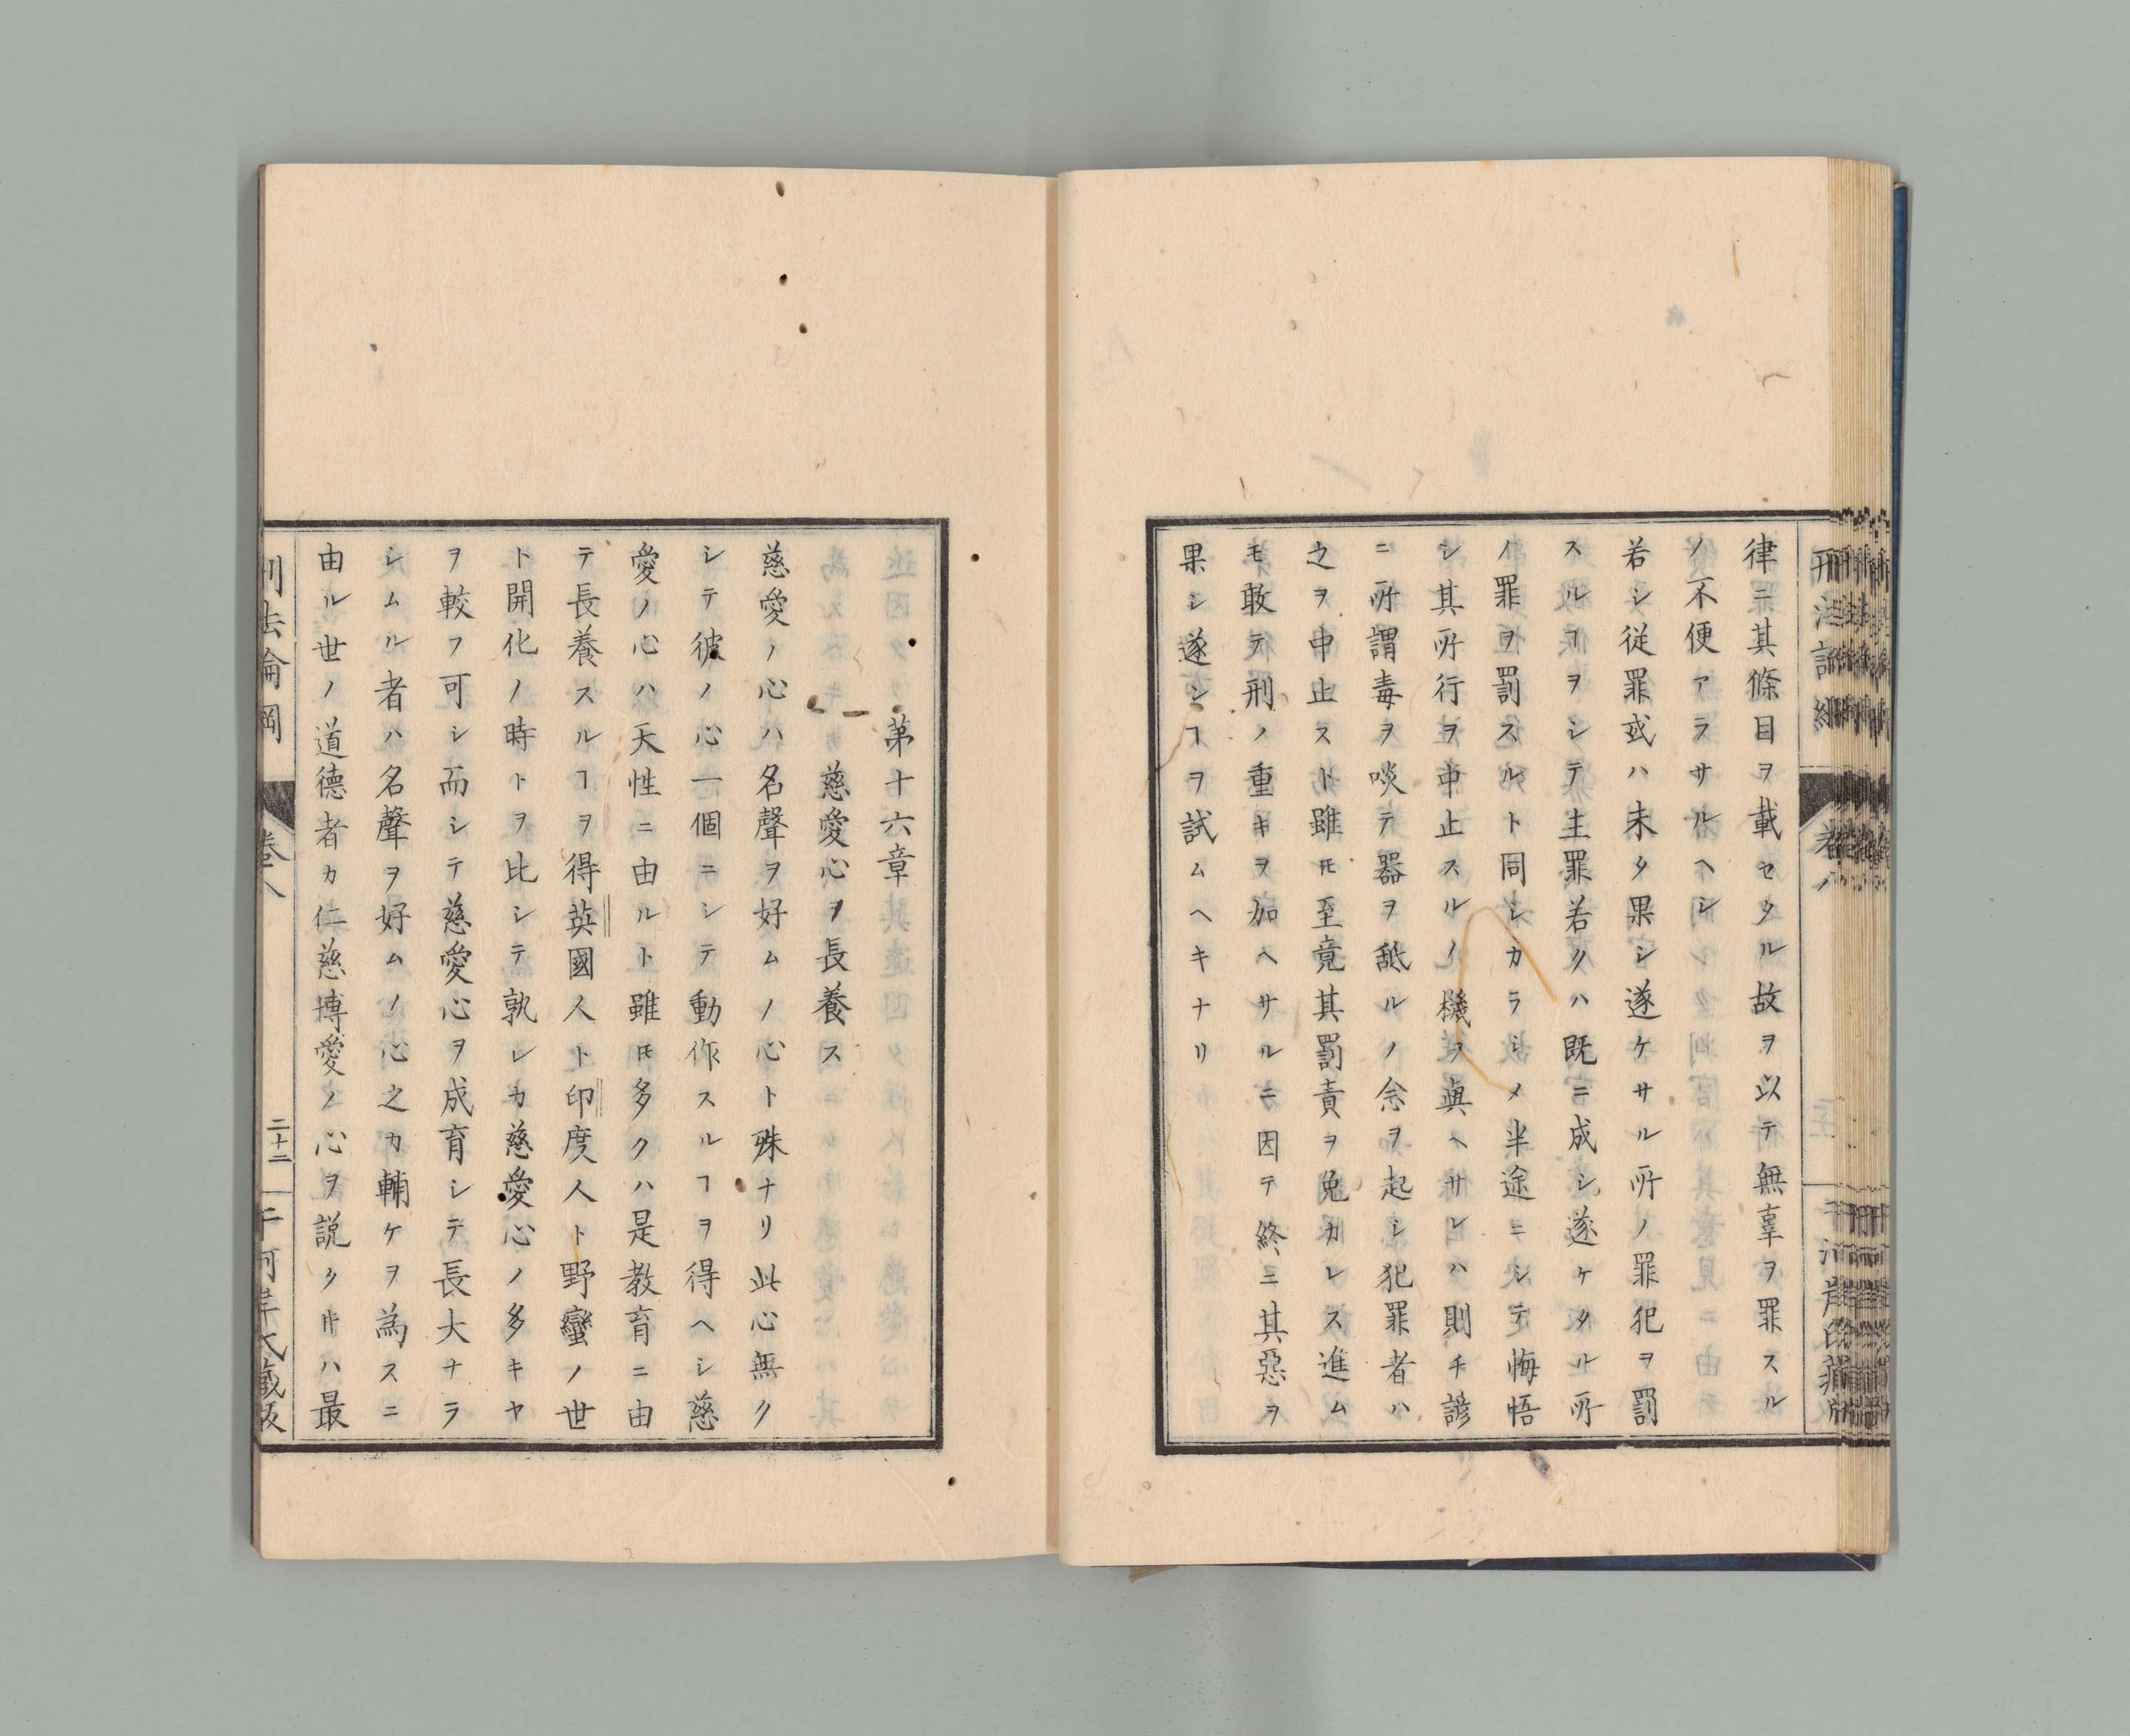 律ニ其條目ヲ載セタル故ヲ以テ無辜ヲ罪スル
ノ不便アラサルヘシ
若シ従罪或ハ未タ果シ遂ケサル所ノ罪犯ヲ罰
スルヿヲシテ主罪若クハ既ニ成シ遂ケタル所
ノ罪ヲ罰スルト同シカラシメ半途ニシテ悔悟
シ其所行ヲ中止スルノ機ヲ與ヘサレハ則チ諺
ニ所謂毒ヲ啖テ器ヲ舐ルノ念ヲ起シ犯罪者ハ
之ヲ中止スト雖𪜈至竟其罰責ヲ免カレス進ム
モ敢テ刑ノ重キヲ加ヘサルニ因テ終ニ其惡ヲ
果シ遂ンヿヲ試ムヘキナリ
第十六章
慈愛心ヲ長養ス
慈愛ノ心ハ名聲ヲ好ムノ心ト殊ナリ此心無ク
シテ彼ノ心一個ニシテ動作スルヿヲ得ヘシ慈
愛ノ心ハ天性ニ由ルト雖𪜈多クハ是教育ニ由
テ長養スルヿヲ得英國人ト印度人ト野蠻ノ世
ト開化ノ時トヲ比シテ孰レカ慈愛心ノ多キヤ
ヲ較フ可シ而シテ慈愛心ヲ成育シテ長大ナラ
シムル者ハ名聲ヲ好ムノ心之カ輔ケヲ為スニ
由ル世ノ道德者カ仁慈博愛ノ心ヲ説クㇳキハ最
刑法論綱
卷八
二十二
千河岸氏藏版